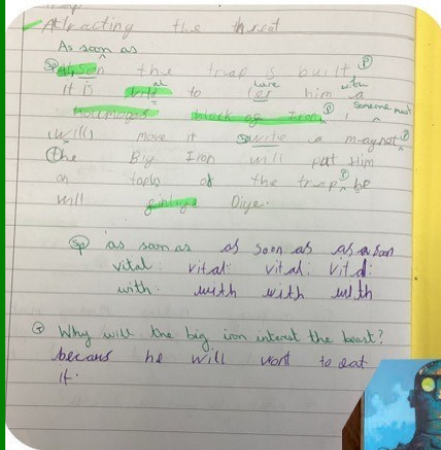 Attracting the threat
As soon as
the trap is built
it is vital to lure him with a
block of Iron, someone must
move it a magnet
The Big Iron will put Him
on top of the trap he
will Diye.
Sp as soon as as soon as as a soon
vital: vital: vital: vital:
with: with with with
Q Why will the big iron interest the beast?
becaus he will wont to eat
it.